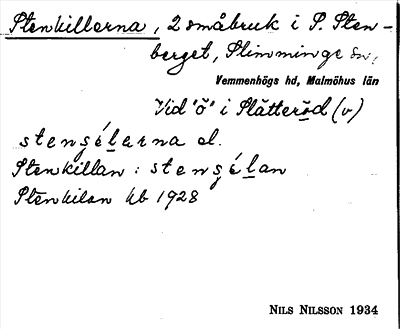 Stenkillerna, 2 småbruk i S. Sten-
berget, Slimminge sn,
Vemmenhögs hd, Malmöhus län
Vid "ö" i Slätteröd (v)
stenşélarna el.
Stenkillan: stenşélan
Stenkilan kb 1928
NILS NILSSON 1934